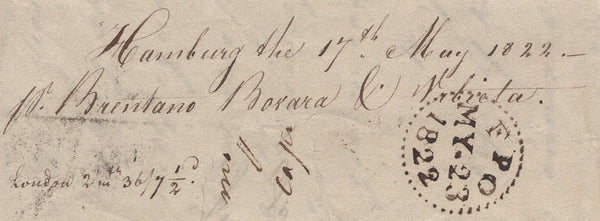 Hamburg the 17th. May 1822.—
pr. Brentano Bovara & Urbieta.
London 2 mth 36/7 1/2 d
F PO
MY. 23
1822